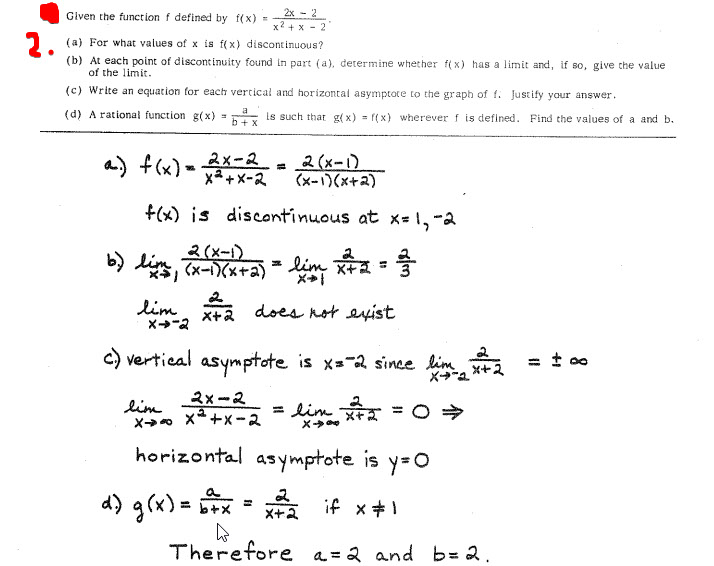 2.
Given the function f defined by f(x) = (2x - 2)/(x² + x - 2).
(a) For what values of x is f(x) discontinuous?
(b) At each point of discontinuity found in part (a), determine whether f(x) has a limit and, if so, give the value
of the limit.
(c) Write an equation for each vertical and horizontal asymptote to the graph of f. Justify your answer.
(d) A rational function g(x) = a/(b + x) is such that g(x) = f(x) wherever f is defined. Find the values of a and b.
a.) f(x) = (2x-2)/(x²+x-2) = 2(x-1)/((x-1)(x+2))
f(x) is discontinuous at x=1,-2
b.) lim x→1 2(x-1)/((x-1)(x+2)) = lim x→1 2/(x+2) = 2/3
lim x→-2 2/(x+2) does not exist
c.) vertical asymptote is x=-2 since lim x→-2 2/(x+2) = ±∞
lim x→∞ (2x-2)/(x²+x-2) = lim x→∞ 2/(x+2) = 0 ⇒
horizontal asymptote is y=0
d.) g(x) = a/(b+x) = 2/(x+2) if x≠1
Therefore a=2 and b=2.